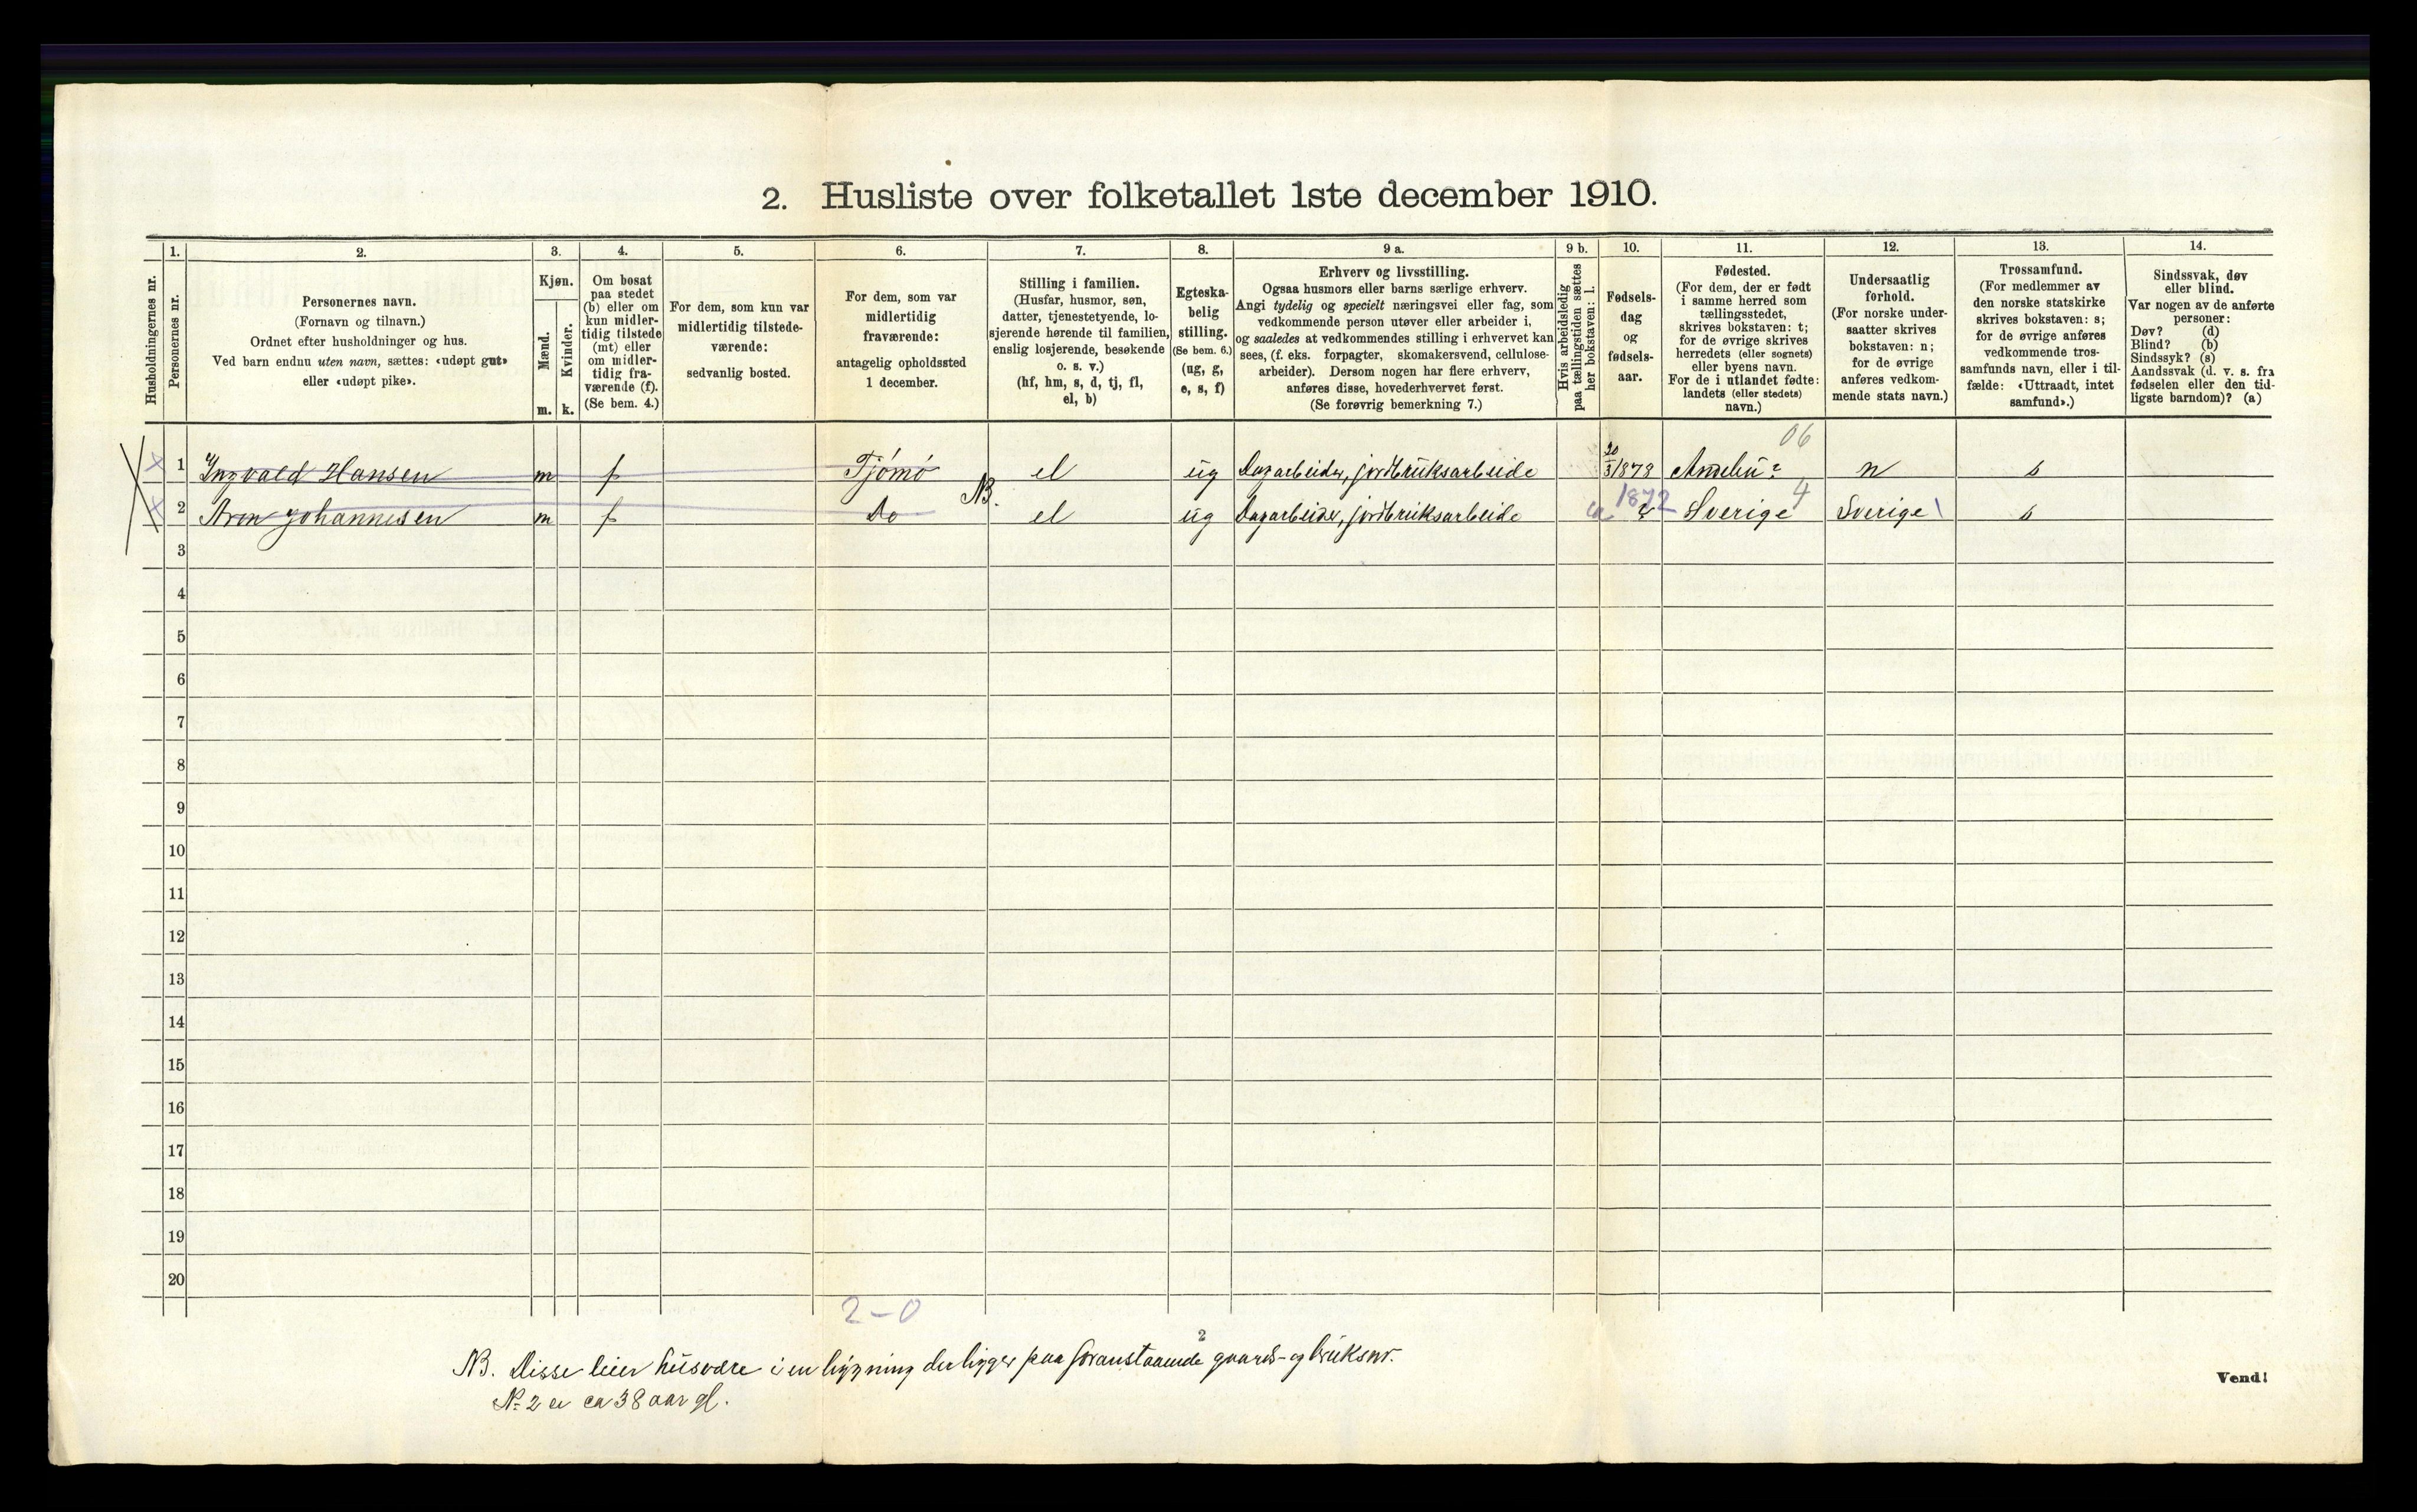 2. Husliste over folketallet 1ste december 1910.
Husholdningernes nr.
1.
Personernes nr.
2.
Personernes navn.
(Fornavn og tilnavn.)
Ordnet efter husholdninger og hus.
Ved barn endnu uten navn, sættes: «udøpt gut»
eller «udøpt pike».
3.
Kjøn.
Mænd.
Kvinder.
m. k.
4.
Om bosat
paa stedet
(b) eller om
kun midler-
tidig tilstede
(mt) eller
om midler-
tidig fra-
værende (f).
(Se bem. 4.)
5.
For dem, som kun var
midlertidig tilstede-
værende:
sedvanlig bosted.
6.
For dem, som var
midlertidig
fraværende:
antagelig opholdssted
1 december.
7.
Stilling i familien.
(Husfar, husmor, søn,
datter, tjenestetyende, lo-
sjerende hørende til familien,
enslig losjerende, besøkende
o. s. v.)
(hf, hm, s, d, tj, fl,
el, b)
8.
Egteska-
belig
stilling.
(Se bem. 6.)
(ug, g,
e, s, f)
9 a.
Erhverv og livsstilling.
Ogsaa husmors eller barns særlige erhverv.
Angi tydelig og specielt næringsvei eller fag, som
vedkommende person utøver eller arbeider i,
og saaledes at vedkommendes stilling i erhvervet kan
sees, (f. eks. forpagter, skomakersvend, cellulose-
arbeider). Dersom nogen har flere erhverv,
anføres disse, hovederhvervet først.
(Se forøvrig bemerkning 7.)
9 b.
Hvis arbeidsledig
paa tællingstiden sættes
her bokstaven: l.
10.
Fødsels-
dag
og
fødsels-
aar.
11.
Fødested.
(For dem, der er født
i samme herred som
tællingsstedet,
skrives bokstaven: t;
for de øvrige skrives
herredets (eller sognets)
eller byens navn.
For de i utlandet fødte:
landets (eller stedets)
navn.)
12.
Undersaatlig
forhold.
(For norske under-
saatter skrives
bokstaven: n;
for de øvrige
anføres vedkom-
mende stats navn.)
13.
Trossamfund.
(For medlemmer av
den norske statskirke
skrives bokstaven: s;
for de øvrige anføres
vedkommende tros-
samfunds navn, eller i til-
fælde: «Uttraadt, intet
samfund».)
14.
Sindssvak, døv
eller blind.
Var nogen av de anførte
personer:
Døv? (d)
Blind? (b)
Sindssyk? (s)
Aandssvak (d. v. s. fra
fødselen eller den tid-
ligste barndom)? (a)
06
x 1 Ingvald Hansen m f Tjömö el ug Dagarbeider, jordbruksarbeide 20/3 1878 Andebu? n s
NB. 1872 4
x 2 Aron Johannesen m f Do el ug Dagarbeider, jordbruksarbeide ca ? Sverige Sverige s
3
4
5
6
7
8
9
10
11
12
13
14
15
16
17
18
19
20
2-0
2
NB. Disse leier husvære i en bygning der ligger paa foranstaaende gaards- og bruksnr.
No 2 er ca 38 aar gl.
Vend!